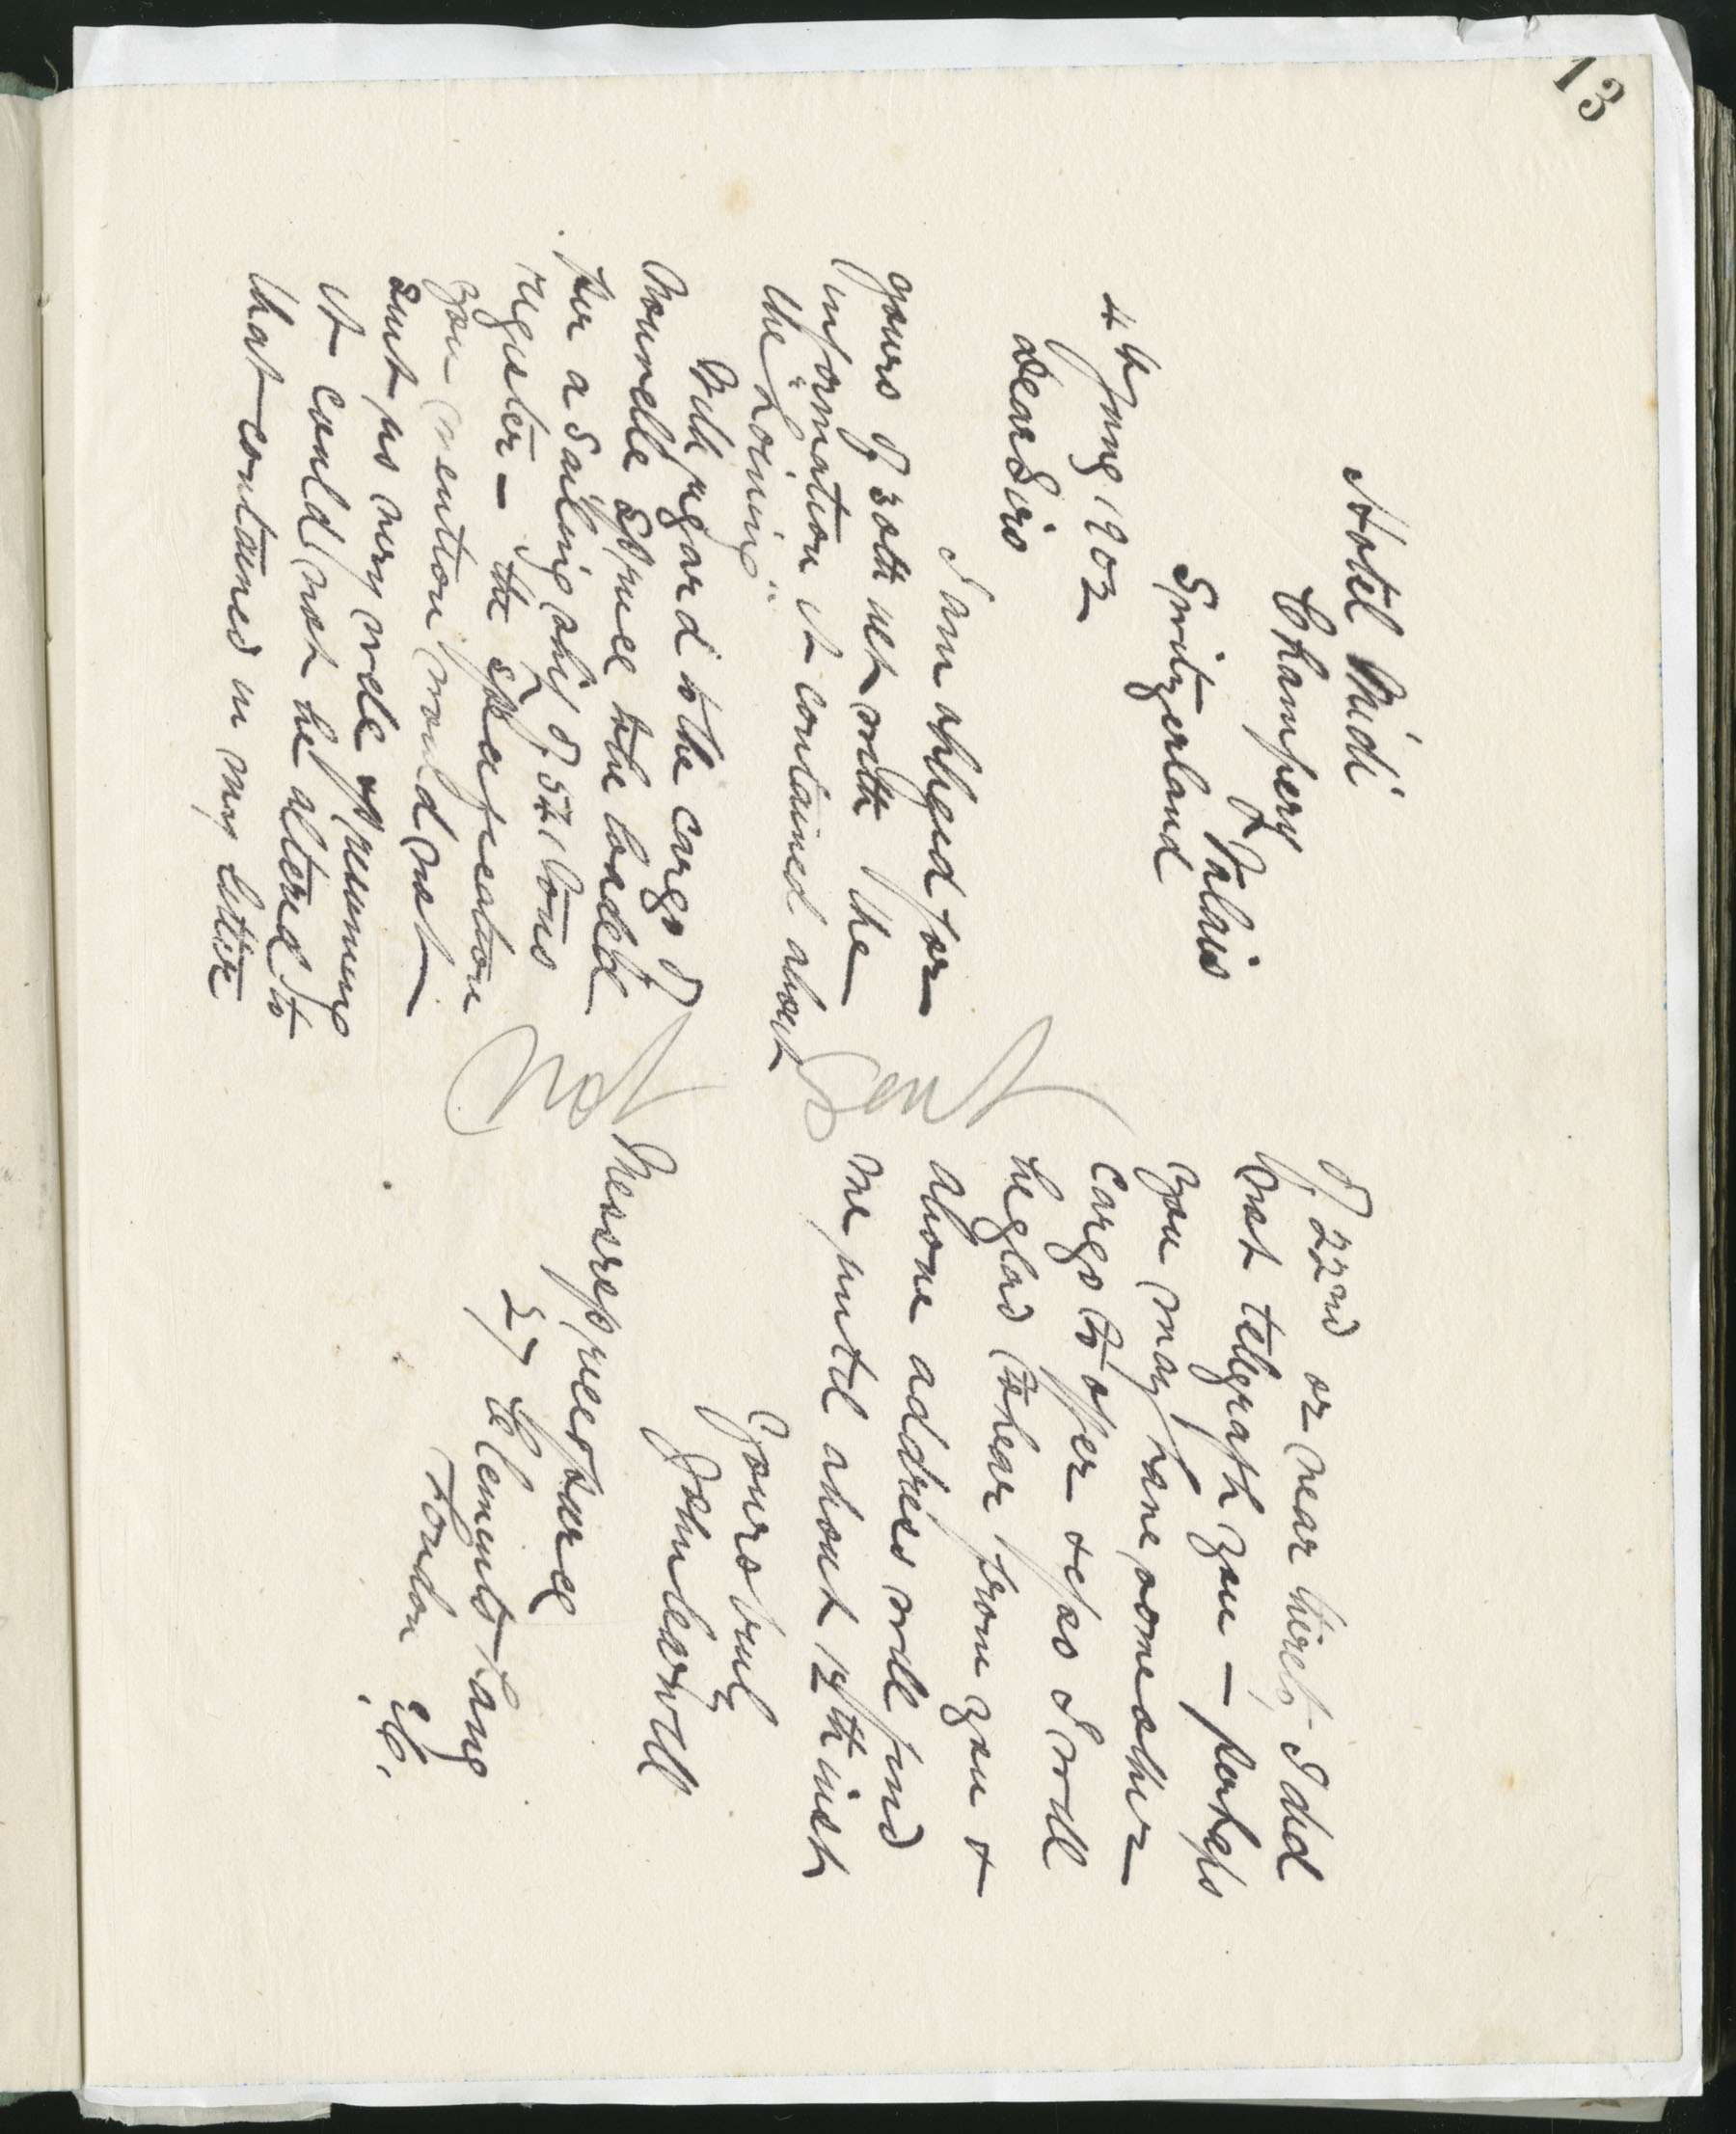 13
Hotel Midi
Champery
Valais
Switzerland
4th June 1902
Dear Sirs
I am obliged for
yours of 30th ult with the
information it contained about
the "Loining"
With regard to the cargo of
Spruce to be loaded
per a sailing ship of 541 tons
register — the specification
you mention would not
suit us very well & presuming
it could not be altered to
that contained in my letter
of 22nd or near thereto I did
not telegraph you — perhaps
you may have some other
cargo to offer & if so I will
be glad to hear from you &
above address will find
me until about 14th inst
Yours truly
John
Messrs Price & Pierce
27 Clements Lane
London E.C.
Not Sent